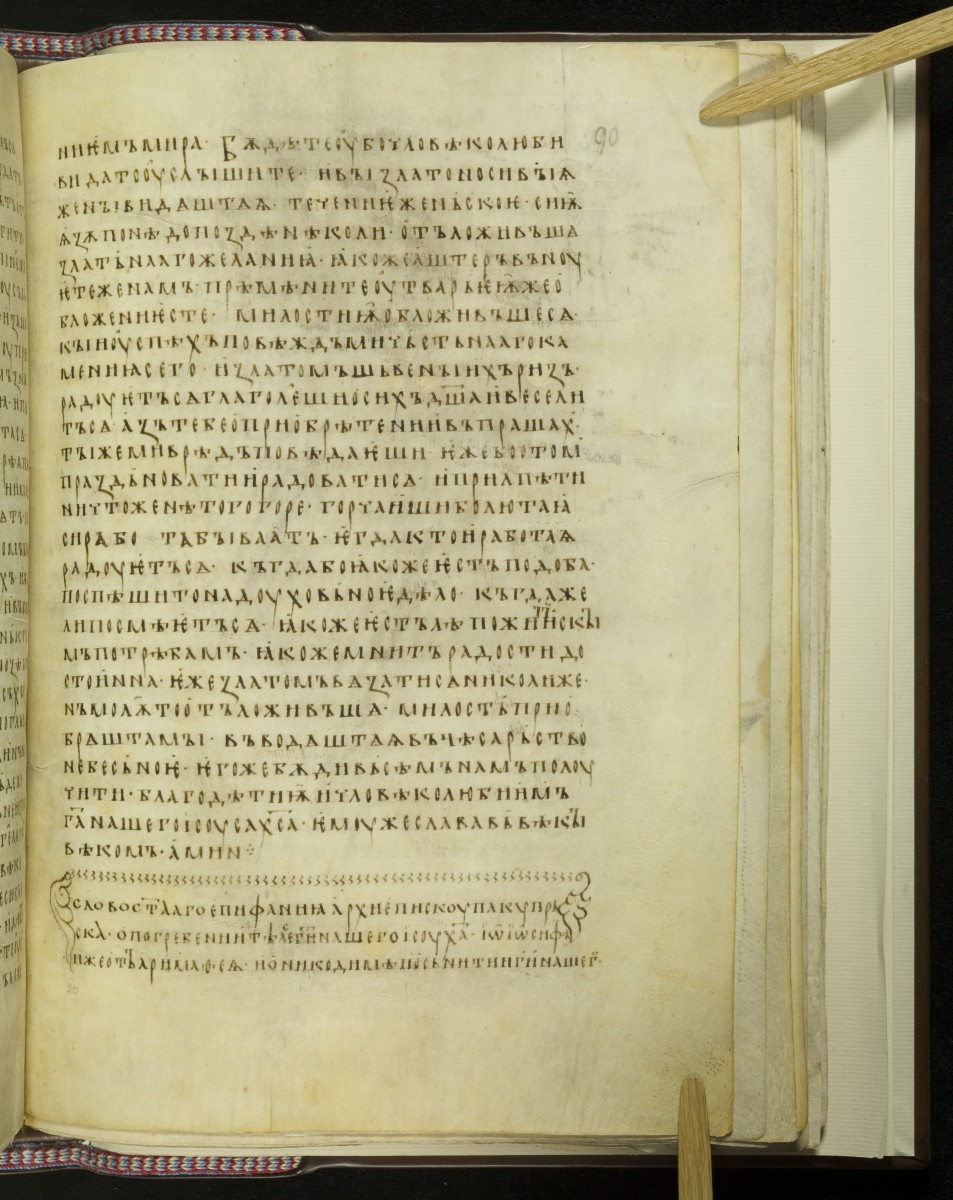 ниѥмъ мира· Бѫдѣте оубо чловѣколюби
ви да т оуслꙑшите· и вꙑ ꙁлатоносивꙑѩ
женꙑ видѧштаѧ· теченниѥ женьскоѥ· сиѩ
ѧꙁѧ понѣ до поꙁдѣ нѣколи· отъложивъшѧ
ꙁлатьнааго желаниꙗ· ꙗкоже аштеръ въноу
ѥте женамъ· прѣмѣните оутварь ѥѭже о
бложени ѥсте· милостиѭ обложивъше сѧ·
кꙑи оуспѣхъ повѣждъ ми чьстьнааго ка
мениꙗ сего· и ꙁлатомъ шьвенꙑихъ риꙁъ·
радоуѥтъ сѧ глаголѥши о сихъ дш҃а и весели
тъ сѧ· аꙁъ тебе о приобрѣтении въпрашахъ·
тꙑ же ми врѣдъ повѣдаѥши· иже бо о томь
праꙁдьновати и радовати сѧ· и прилѣпѣти
ничтоже нѣ того горе· горчаиши бо лютаꙗ
си рабо та бꙑваатъ· ѥгда кто и работаѧ
радоуѥтъ сѧ· къгда бо ꙗкоже ѥстъ подоба·
поспѣшитъ на доуховьноѥ дѣло· къгда же
ли посмѣѥтъ сѧ· ꙗкоже ѥстъ лѣпо жит҃искꙑ
мъ потрѣбамъ· ꙗкоже мнитъ радости до
стоина· ѥже ꙁлатомъ вѧꙁати сѧ николиже·
нъ молѭ то отъложивъша· милость прио
браштамꙑ· въводѧштаѭ въ чѣсарьство
небесьноѥ· ѥгоже бѫди вьсѣмъ намъ полоу
чити· благодѣтиѭ и чловѣколюбиимь
га҃ нашего ісоуса хс҃а· ѥмоуже слава въ вѣкꙑ
вѣкомъ· амин჻
Слово ст҃ааго епифаниꙗ архиепискоупа кѵпрь
ска· о погребении тѣлесе г҃и нашего ісоу х҃а· і о иосифѣ
иже отъ аримаѳеѧ· и о никодимѣ и о сънитии г҃и нашег҃·
90